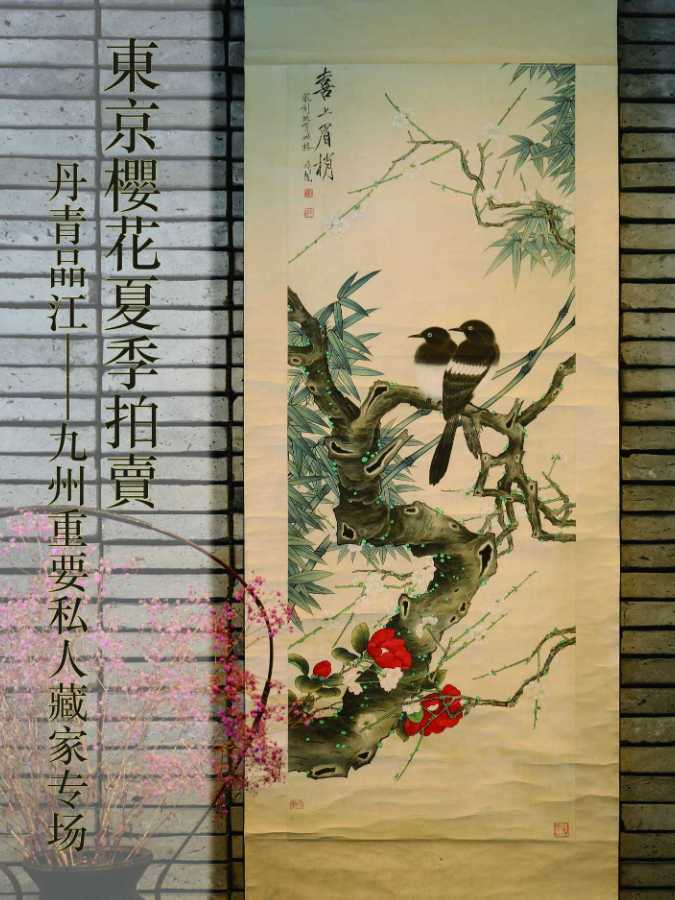 東京櫻花夏季拍賣
丹青品江——九州重要私人藏家专场
喜上眉梢